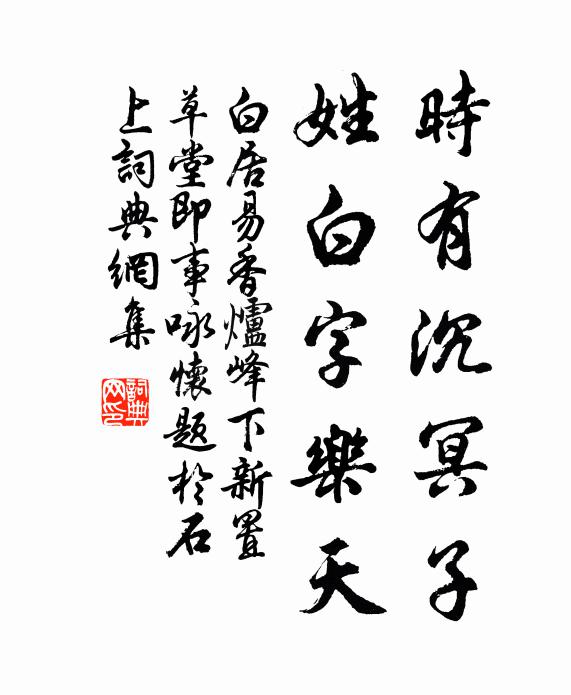 時有沉冥子
姓白字樂天
白居易香爐峰下新置
草堂即事咏懷題於石
上詞典網集
詞典
网印